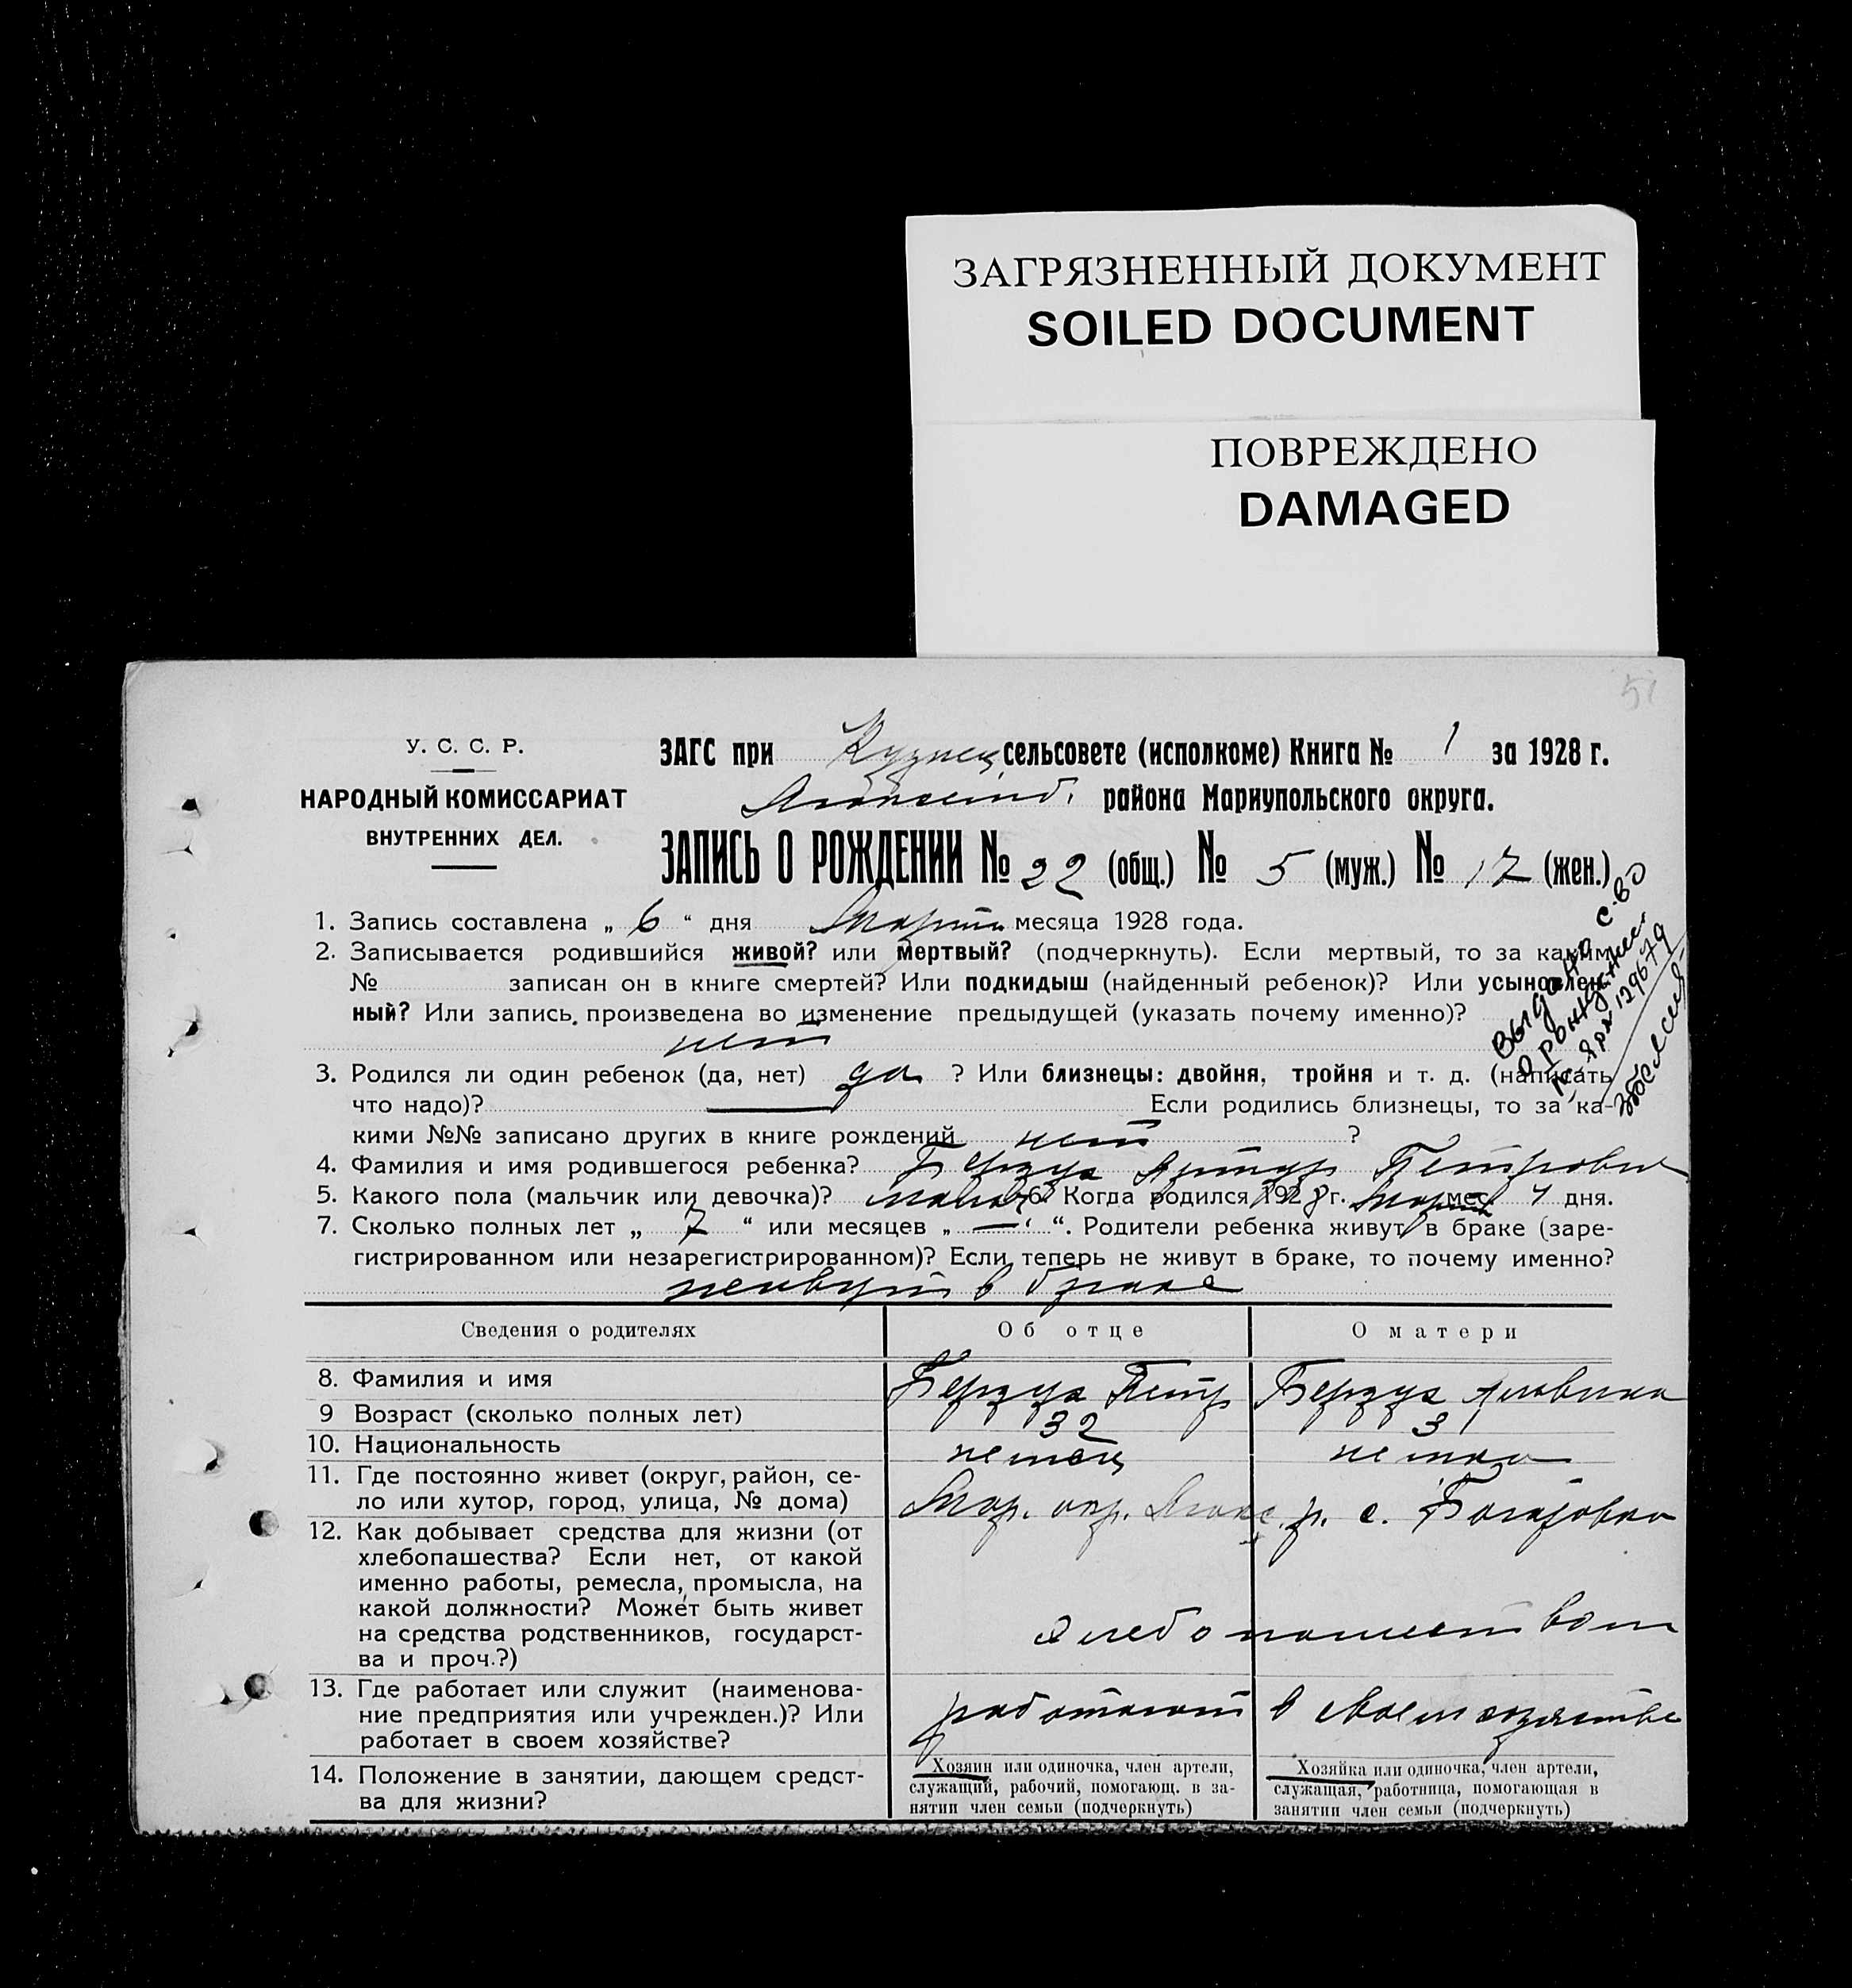 ЗАГРЯЗНЕННЫЙ ДОКУМЕНТ
SOILED DOCUMENT
ПОВРЕЖДЕНО
DAMAGED
51
У. С. С. Р.
НАРОДНЫЙ КОМИССАРИАТ
ВНУТРЕННИХ ДЕЛ.
ЗАГС при Кузнец. сельсовете (исполкоме) Книга № 1 за 1928 г.
района Мариупольского округа.
ЗАПИСЬ О РОЖДЕНИИ № 22 (общ.) № 5 (муж.) № 17 (жен.)
Выдано с-во
о рождении
129679
1. Запись составлена „ 6 “ дня Марта месяца 1928 года.
2. Записывается родившийся живой? или мертвый? (подчеркнуть). Если мертвый, то за каким
№ записан он в книге смертей? Или подкидыш (найденный ребенок)? Или усыновлен-
ный? Или запись произведена во изменение предыдущей (указать почему именно)?
нет
3. Родился ли один ребенок (да, нет) да ? Или близнецы: двойня, тройня и т. д. (написать
что надо)? — Если родились близнецы, то за ка-
кими №№ записано других в книге рождений нет ?
4. Фамилия и имя родившегося ребенка? Артур Петрович
5. Какого пола (мальчик или девочка)? 6. Когда родился 1928 г. Март мес. 4 дня.
7. Сколько полных лет „ 7 “ или месяцев „ — “. Родители ребенка живут в браке (заре-
гистрированном или незарегистрированном)? Если теперь не живут в браке, то почему именно?
живут в браке
Сведения о родителях Об отце О матери
8. Фамилия и имя Петр
9 Возраст (сколько полных лет) 32 31
10. Национальность немец немка
11. Где постоянно живет (округ, район, се-
ло или хутор, город, улица, № дома) Мар. окр. р. с.
12. Как добывает средства для жизни (от
хлебопашества? Если нет, от какой
именно работы, ремесла, промысла, на
какой должности? Может быть живет
на средства родственников, государст-
ва и проч.?)
хлебопашеством
13. Где работает или служит (наименова-
ние предприятия или учрежден.)? Или
работает в своем хозяйстве?
работают в своем хозястве
14. Положение в занятии, дающем средст-
ва для жизни?
Хозяин или одиночка, член артели,
служащий, рабочий, помогающ. в за-
нятии член семьи (подчеркнуть)
Хозяйка или одиночка, член артели,
служащая, работница, помогающая в
занятии член семьи (подчеркнуть)